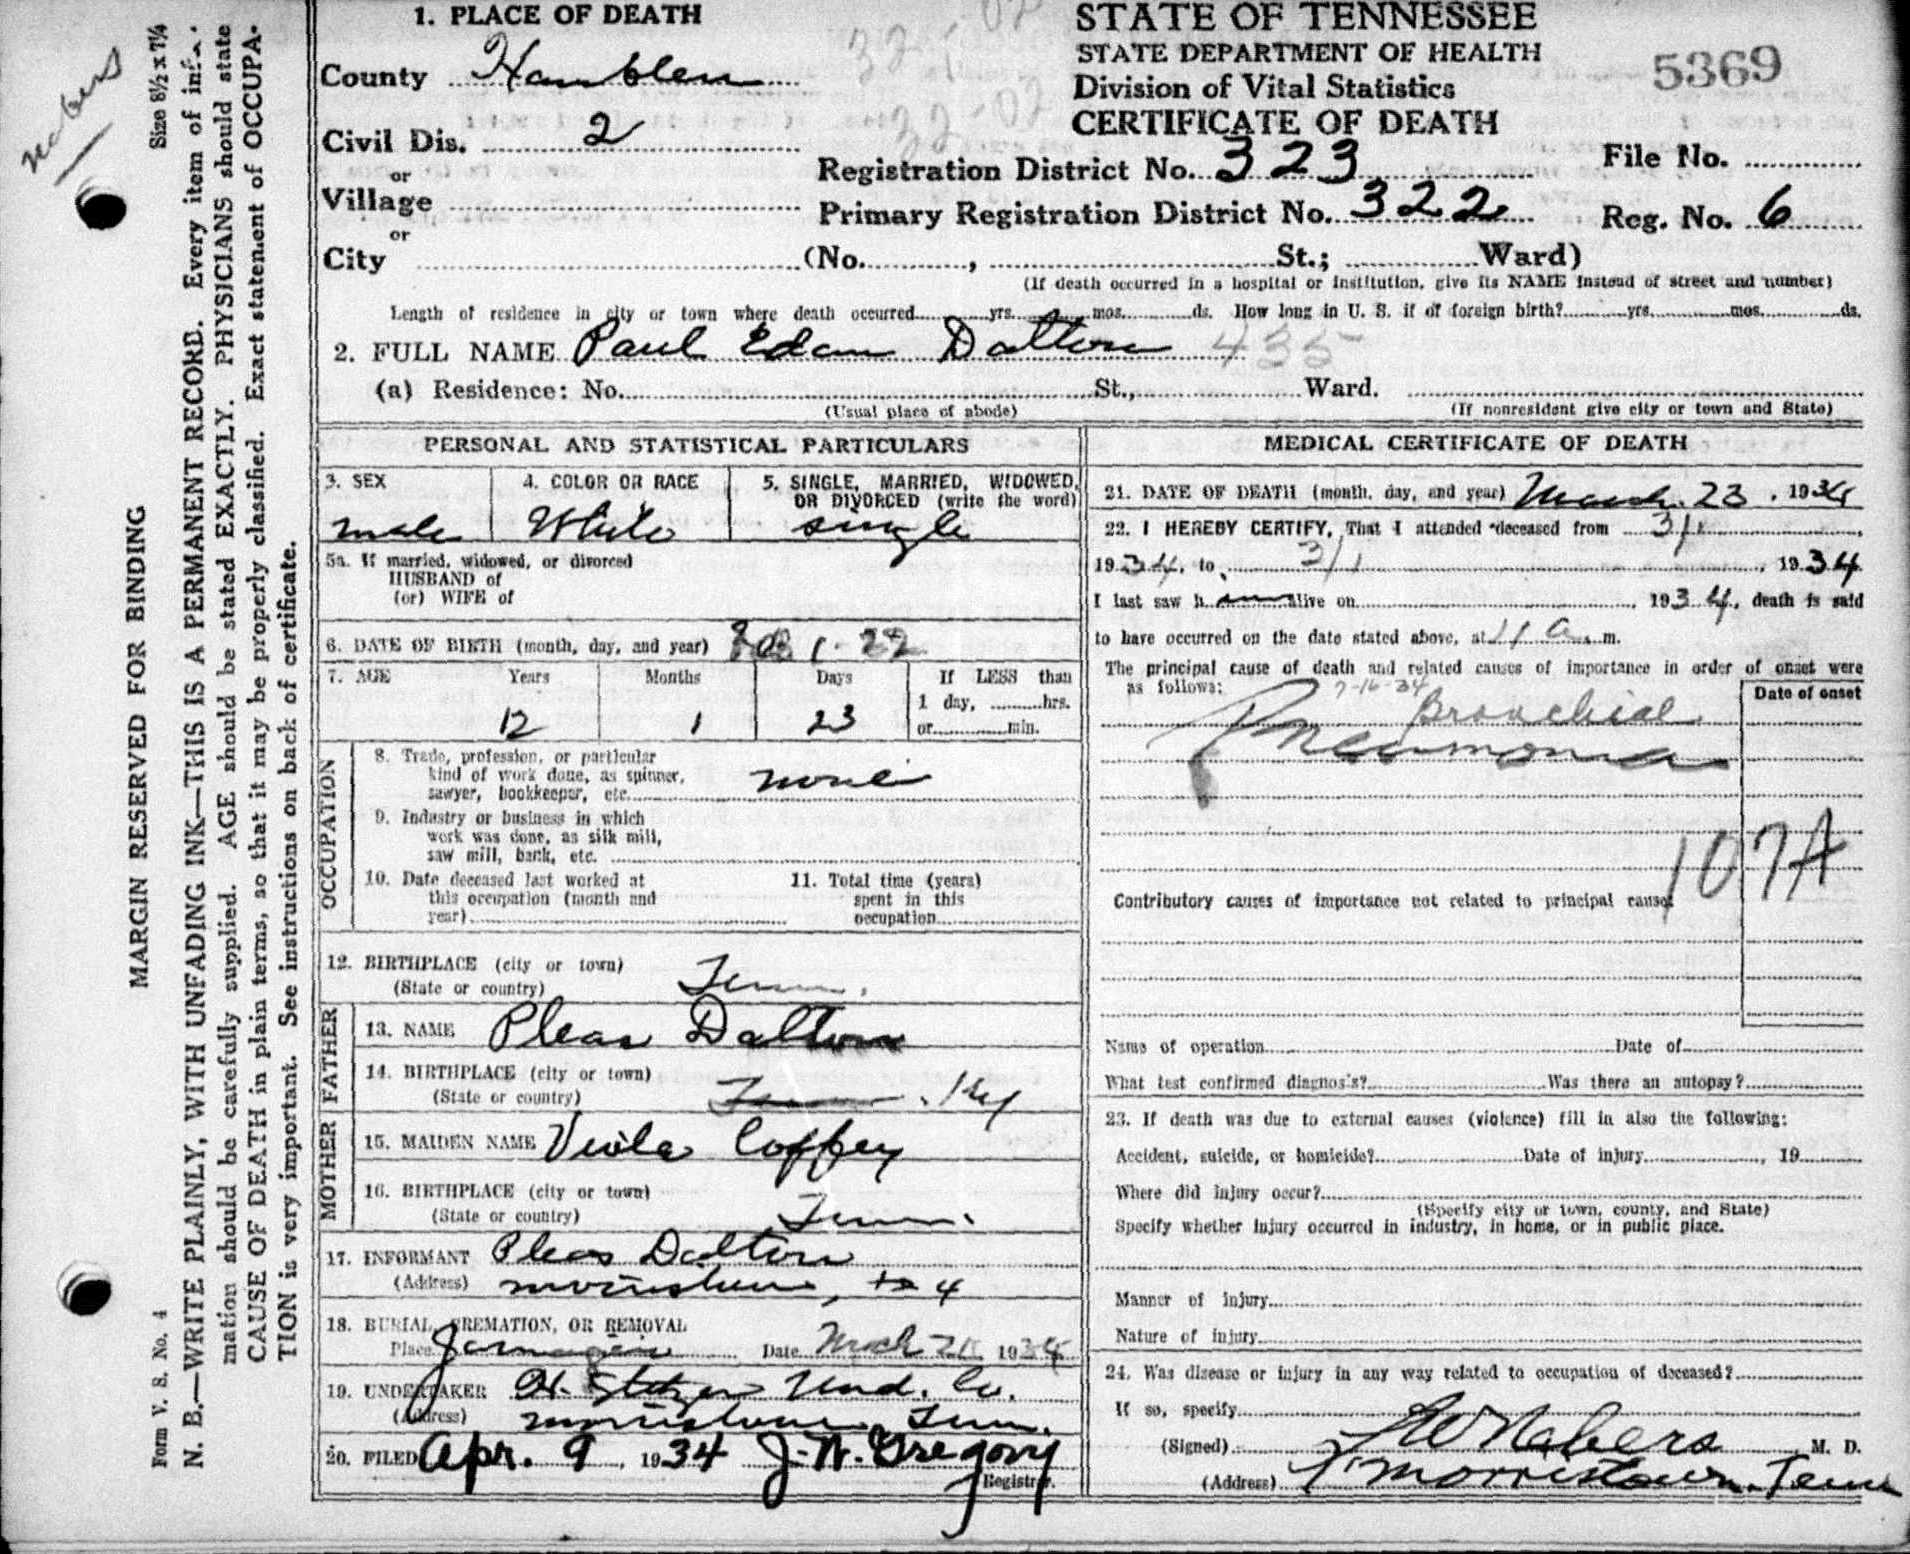 nabers
Size 8½ x 7¼
MARGIN RESERVED FOR BINDING
N. B.—WRITE PLAINLY, WITH UNFADING INK—THIS IS A PERMANENT RECORD. Every item of infor-
mation should be carefully supplied. AGE should be stated EXACTLY. PHYSICIANS should state
CAUSE OF DEATH in plain terms, so that it may be properly classified. Exact statement of OCCUPA-
TION is very important. See instructions on back of certificate.
Form V. S. No. 4
1. PLACE OF DEATH
County Hamblen
Civil Dis. 2
or
Village
or
City (No. , St.; Ward)
32-02
32-02
STATE OF TENNESSEE
STATE DEPARTMENT OF HEALTH
Division of Vital Statistics
CERTIFICATE OF DEATH
5369
Registration District No. 323 File No.
Primary Registration District No. 322 Reg. No. 6
(If death occurred in a hospital or institution, give its NAME instead of street and number)
Length of residence in city or town where death occurred yrs. mos. ds. How long in U. S. if of foreign birth? yrs. mos. ds.
2. FULL NAME Paul Edam Dalton 435
(a) Residence: No. St., Ward.
(Usual place of abode) (If nonresident give city or town and State)
PERSONAL AND STATISTICAL PARTICULARS
3. SEX 4. COLOR OR RACE 5. SINGLE, MARRIED, WIDOWED, OR DIVORCED (write the word)
male White single
5a. If married, widowed, or divorced
HUSBAND of
(or) WIFE of
6. DATE OF BIRTH (month, day, and year) 1-22
7. AGE Years Months Days If LESS than
12 1 23 1 day, hrs.
or min.
OCCUPATION
8. Trade, profession, or particular
kind of work done, as spinner,
sawyer, bookkeeper, etc. none
9. Industry or business in which
work was done, as silk mill,
saw mill, bank, etc.
10. Date deceased last worked at
this occupation (month and
year)
11. Total time (years)
spent in this
occupation
12. BIRTHPLACE (city or town)
(State or country) Tenn.
FATHER
13. NAME Pleas Dalton
14. BIRTHPLACE (city or town)
(State or country) Tenn. Ky
MOTHER
15. MAIDEN NAME Viola Coffey
16. BIRTHPLACE (city or town)
(State or country) Tenn.
17. INFORMANT Pleas Dalton
(Address) morristown, 4
18. BURIAL, CREMATION, OR REMOVAL
Place Jarnagin Date Mch 1934
19. UNDERTAKER Und. Co.
(Address) morristown, Tenn.
20. FILED Apr. 9, 1934 J. W. Gregory
Registrar.
MEDICAL CERTIFICATE OF DEATH
21. DATE OF DEATH (month, day, and year) March 23, 1934
22. I HEREBY CERTIFY, That I attended deceased from 3/1,
1934, to 3/1, 1934
I last saw h im alive on , 1934, death is said
to have occurred on the date stated above, at 11 a. m.
The principal cause of death and related causes of importance in order of onset were
as follows: 7-16-34 Date of onset
Bronchial
Pneumonia
107A
Contributory causes of importance not related to principal cause:
Name of operation Date of
What test confirmed diagnosis? Was there an autopsy?
23. If death was due to external causes (violence) fill in also the following:
Accident, suicide, or homicide? Date of injury , 19
Where did injury occur?
(Specify city or town, county, and State)
Specify whether injury occurred in industry, in home, or in public place.
Manner of injury
Nature of injury
24. Was disease or injury in any way related to occupation of deceased?
If so, specify
(Signed) Nabers M. D.
(Address) Morristown, Tenn